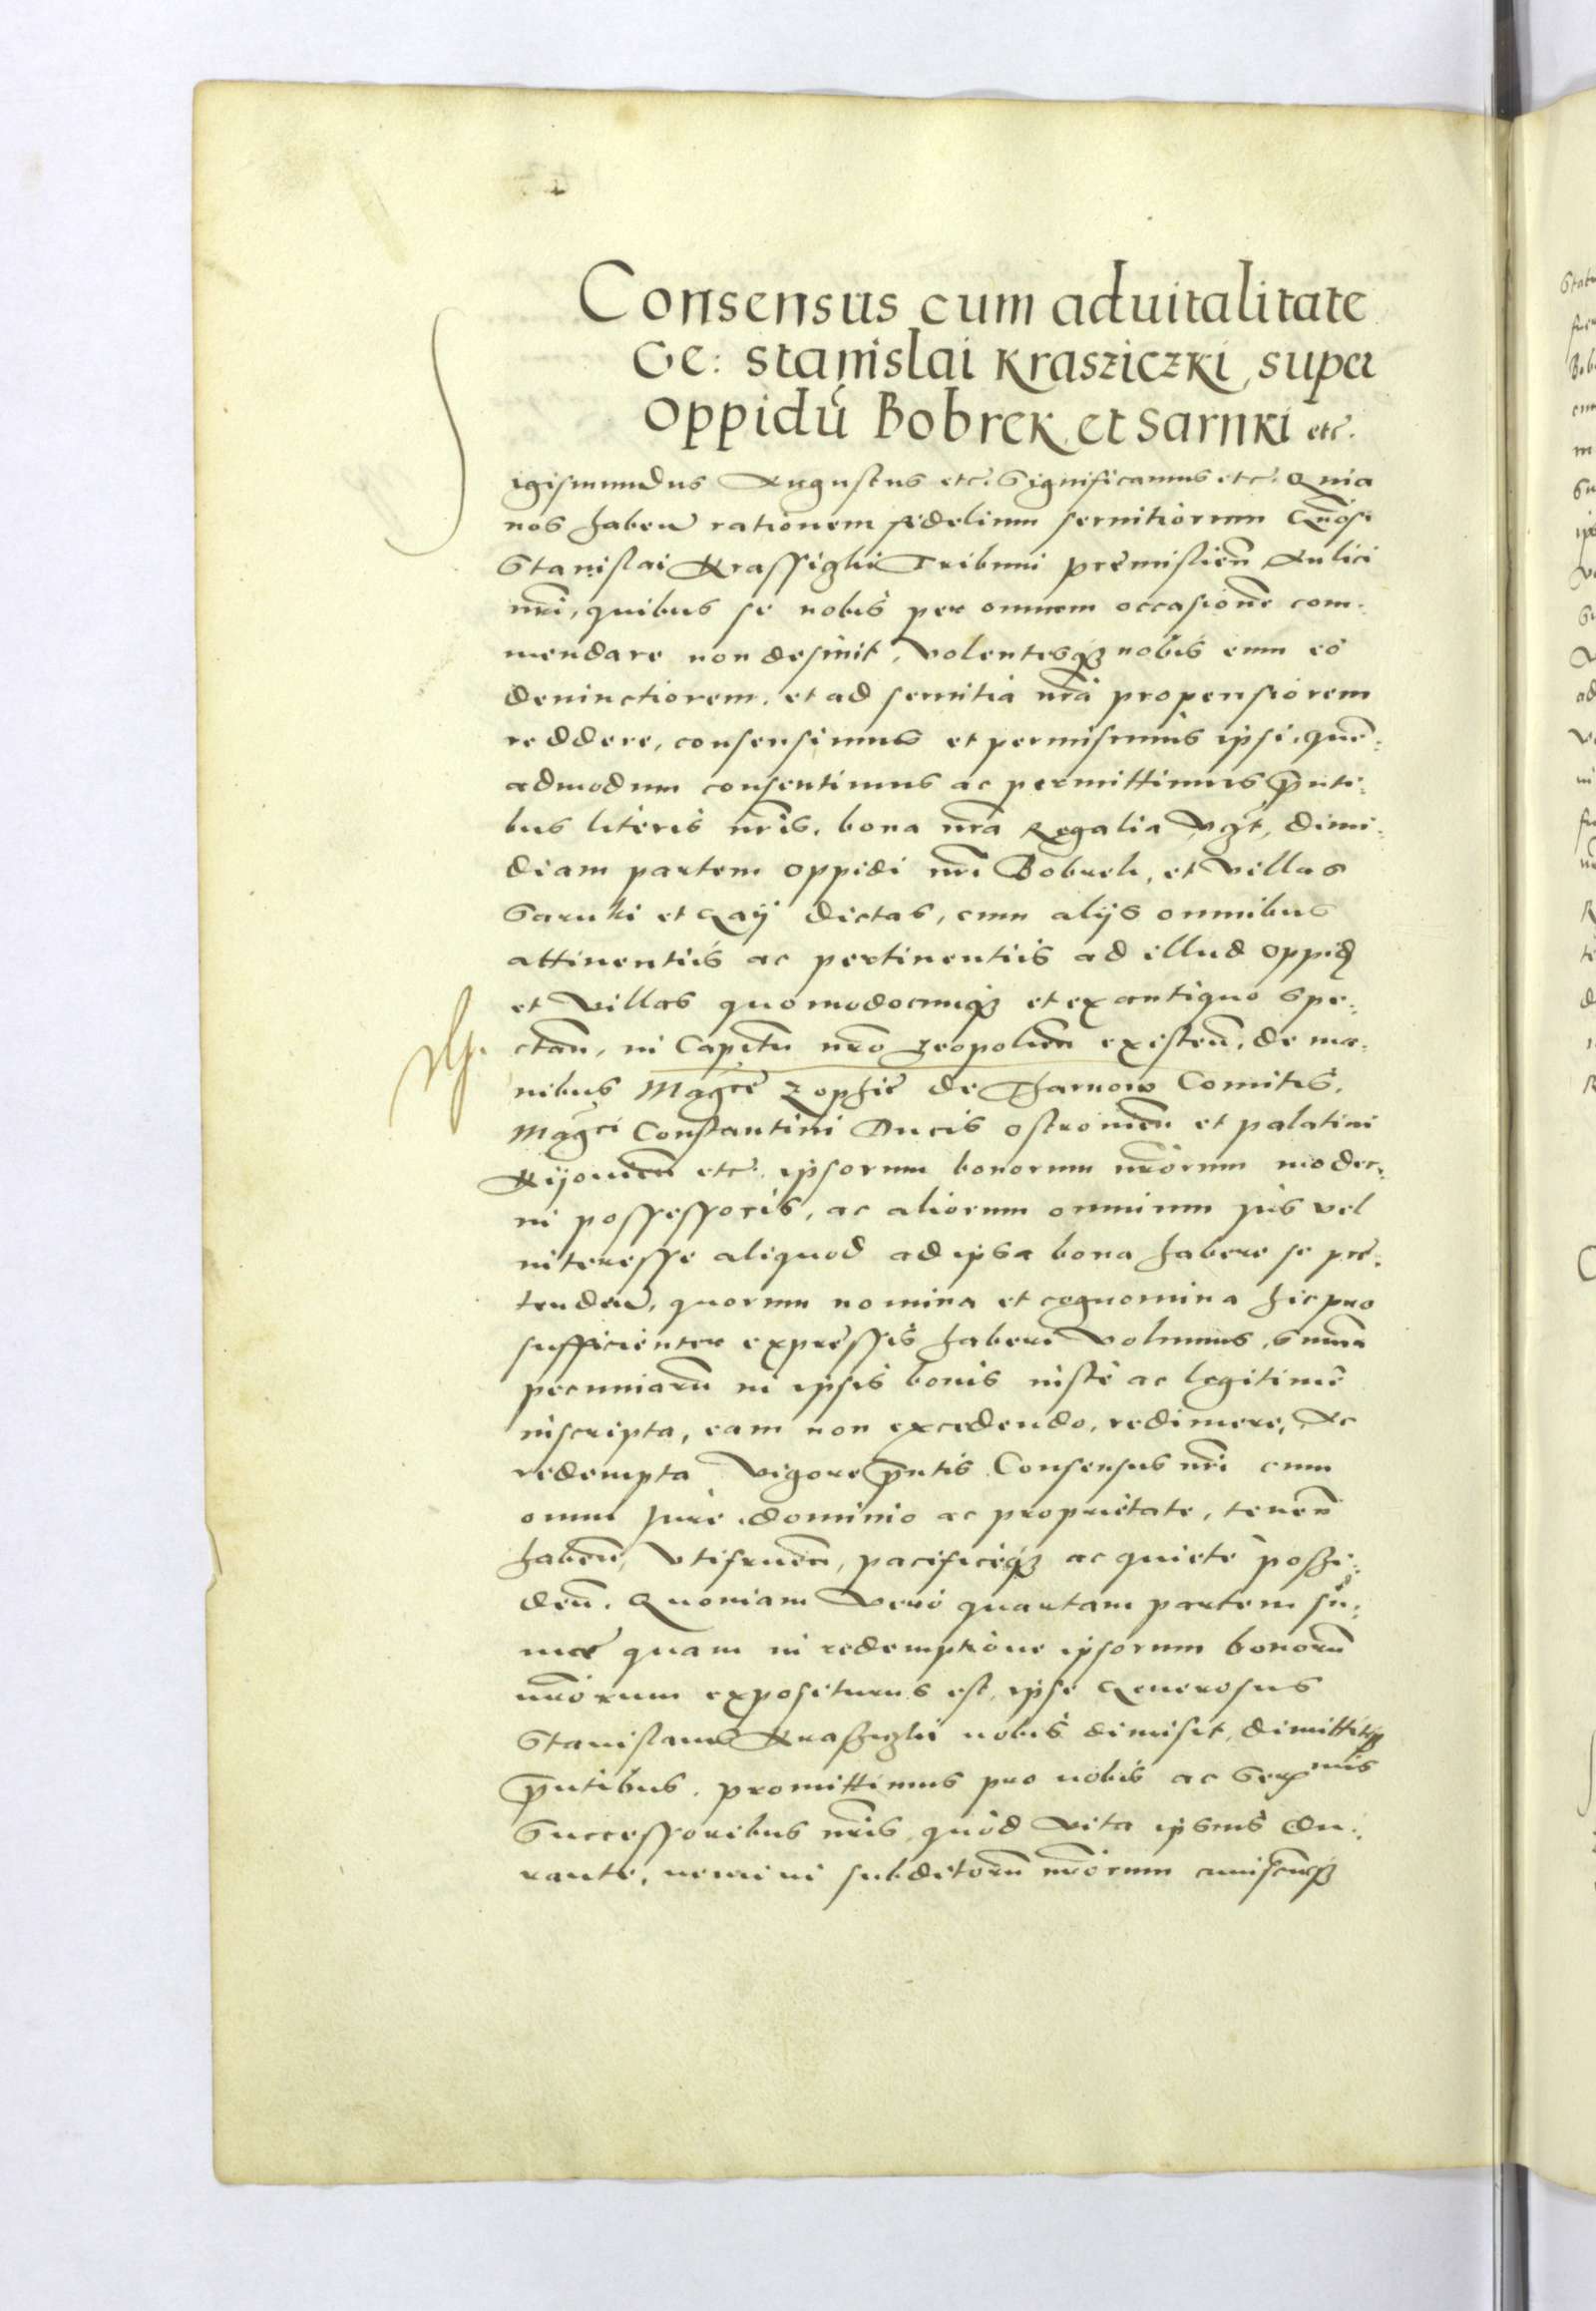 Consensus cum aduitalitate
Ge: Stanislai Krasziczki, super
Oppidū Bobrek et Sarnki etc.
Sigismundus Augustus etc. Significamus etc. Quia
nos haben̄ rationem fidelium seruitiorum Gn̄osi
Stanislai Krassiczki Tribuni premislien̄ Aulici
nr̄i, quibus se nobis per omnem occasionē com:
mendare non desinit, Volentesqȝ nobis eum eò
deuinctiorem, et ad seruitia nr̄a propensiorem
reddere, consensimus et permisimus ipsi, quē:
admodum consentimus ac permittimus p̄nti:
bus literis nr̄is, bona nr̄a Regalia Vȝt, dimi:
diam partem oppidi nr̄i Bobrek, et Villas
Sarnki et Gaij dictas, cum alijs omnibus
attinentiis ac pertinentiis ad illud oppid
et Villas quomodocunqȝ et ex antiquo spe:
ctan̄, in Capitn̄ nr̄o Leopolien̄ existen̄, de ma:
nibus Mag̃ce Zophie de Tharnow Comitis,
Mag̃ci Constantini Ducis Ostrouien̄ et palatini
Kijouien̄ etc. ipsorum bonorum nr̄orum moder:
ni possessoris, ac aliorum omnium jus vel
interesse aliquod ad ipsa bona habere se pre:
tenden̄, quorum nomina et cognomina hic pro
sufficienter expressis haberi Volumus, sum̄a
pecuniarū in ipsis bonis iustè ac legitimè
inscripta, eam non excedendo, redimere, Ac
redempta Vigore p̄ntis Consensus nr̄i cum
omni Jure dominio ac proprietate, tenen̄
haben̄, Vtifruen̄, pacificeqȝ ac quietè possi:
den̄. Quoniam Verò quartam partem sū:
mae quam in redemptione ipsorum bonorū
nr̄orum expositurus est, ipse Generosus
Stanislaus Krassiczki nobis dimisit, dimittitqȝ
p̄ntibus, promittimus pro nobis ac Serēmis
Successoribus nr̄is, quòd Vita ipsius du:
rante, nemini subditorū nr̄orum cuiuscunqȝ